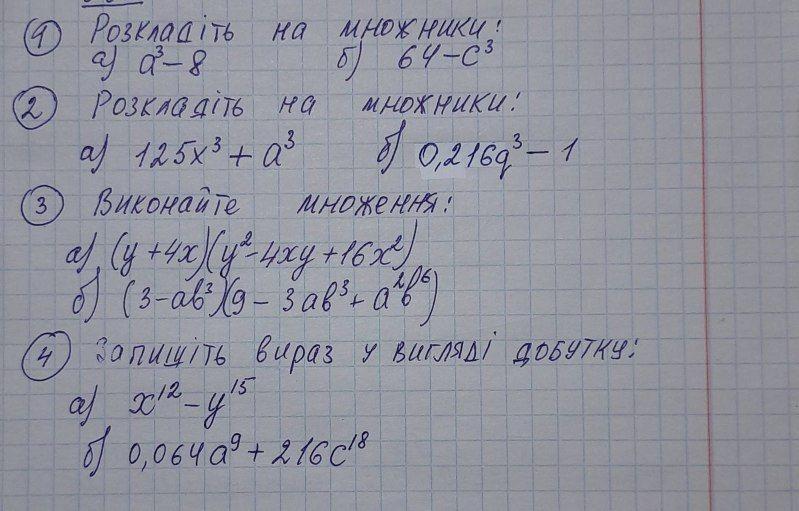 1 Розкладіть на множники:
а) a³-8 б) 64-c³
2 Розкладіть на множники:
а) 125x³ + a³ б) 0,216q³ - 1
3 Виконайте множення:
а) (y + 4x)(y² - 4xy + 16x²)
б) (3 - ab³)(9 - 3ab³ + a²b⁶)
4 Запишіть вираз у вигляді добутку:
а) x¹² - y¹⁵
б) 0,064a⁹ + 216c¹⁸